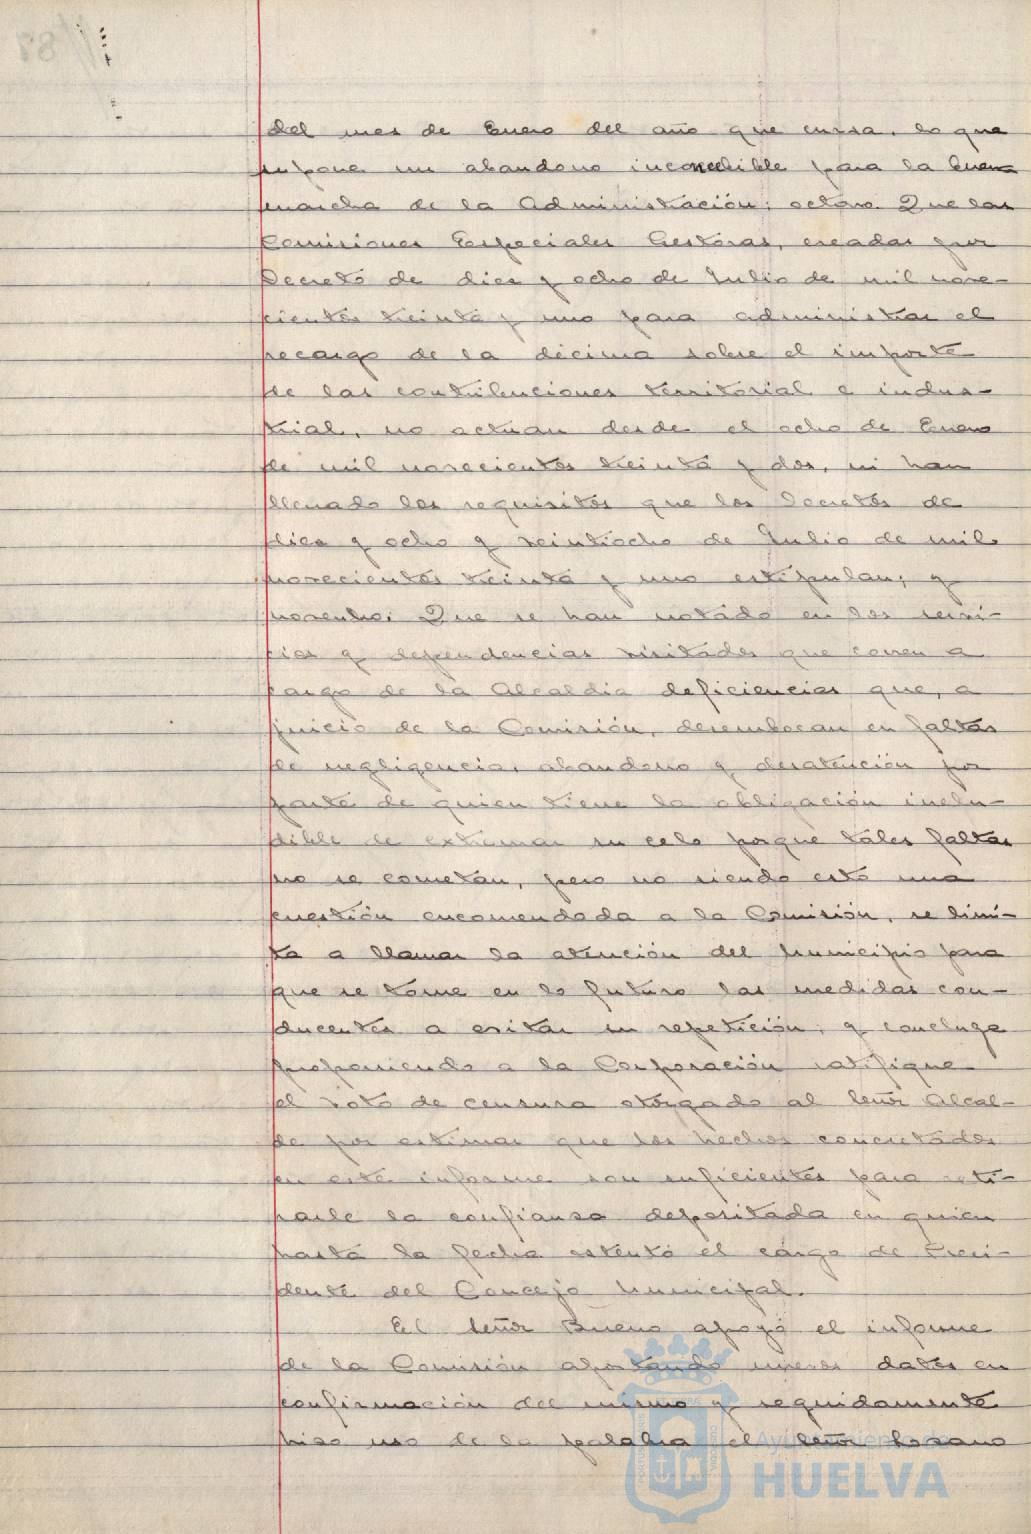 del mes de Enero del año que cursa, lo que
supone un abandono inconcebible para la buena
marcha de la Administración; octavo. Que las
Comisiones Especiales Gestoras, creadas por
Decreto de diez y ocho de Julio de mil nove-
cientos treinta y uno para administrar el
recargo de la décima sobre el importe
de las contribuciones territorial e indus-
trial, no actúan desde el ocho de Enero
de mil novecientos treinta y dos, ni han
llenado los requisitos que los Decretos de
diez y ocho y veintiocho de Julio de mil
novecientos treinta y uno estipulan; y
noveno: Que se han notado en los servi-
cios y dependencias visitados que corren a
cargo de la Alcaldía deficiencias que, a
juicio de la Comisión, desembocan en faltas
de negligencia, abandono y desatención por
parte de quien tiene la obligación inelu-
dible de extremar su celo porque tales faltas
no se cometan, pero no siendo esto una
cuestión encomendada a la Comisión, se limi-
ta a llamar la atención del Municipio para
que se tome en lo futuro las medidas con-
ducentes a evitar su repetición, y concluye
proponiendo a la Corporación ratifique
el voto de censura otorgado al Señor Alcal-
de por estimar que los hechos concretados
en este informe son suficientes para reti-
rarle la confianza depositada en quien
hasta la fecha ostentó el cargo de Presi-
dente del Concejo Municipal.
El Señor Bueno apoyó el informe
de la Comisión aportando nuevos datos en
confirmación del mismo y seguidamente
hizo uso de la palabra el Señor Lozano
Ayuntamiento de
HUELVA